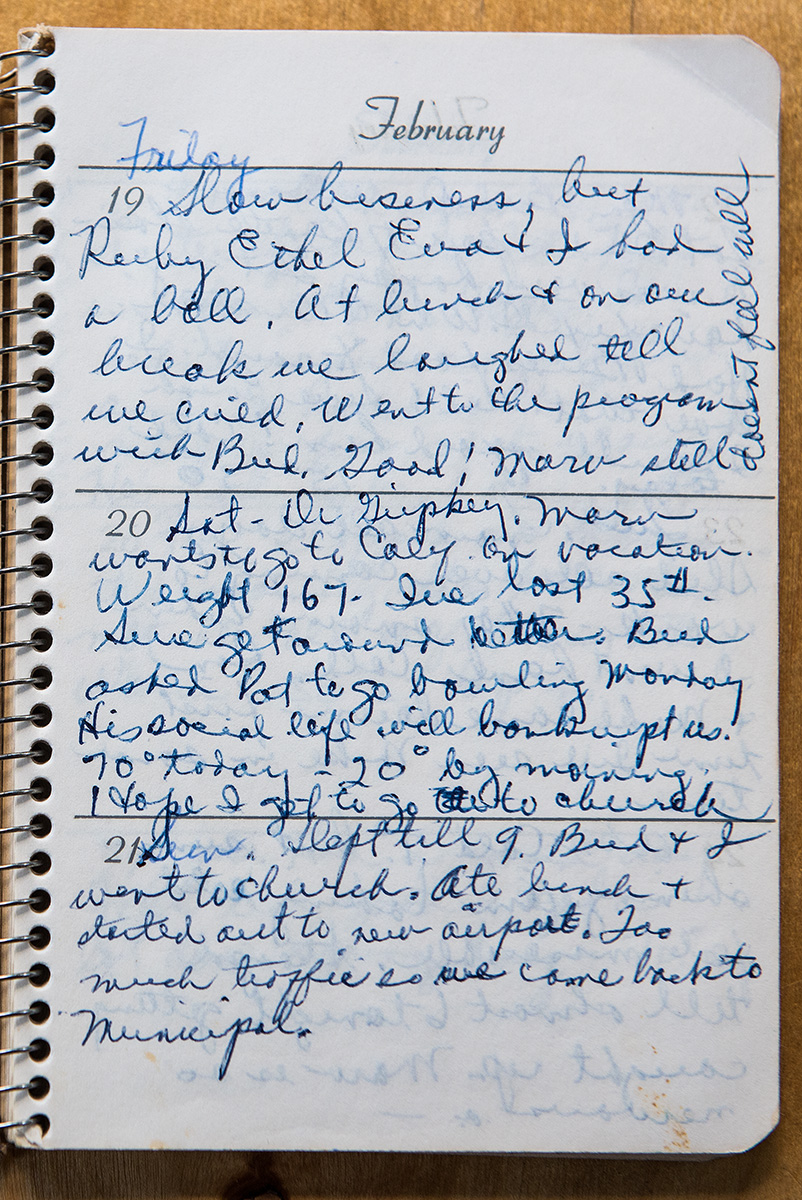 February
Friday
19 Slow business, but
Ruby Ethel Eva & I had
a ball. At lunch & on our
break we laughed till
we cried. Went to the program
with Bud. Good! Marv still
doesn't feel well
20 Sat - Dr. Gipskey. Marv
wants to go to Caly. on vacation.
Weight 167 - Ive lost 35#.
Sure get around better. Bud
asked Pat to go bowling Monday
His social life will bankrupt us.
70° today - 20° by morning.
I Hope I get to go to church
21 Sun. Slept till 9. Bud & I
went to church. Ate lunch +
started out to new airport. Too
much traffic so we came back to
Municipal.